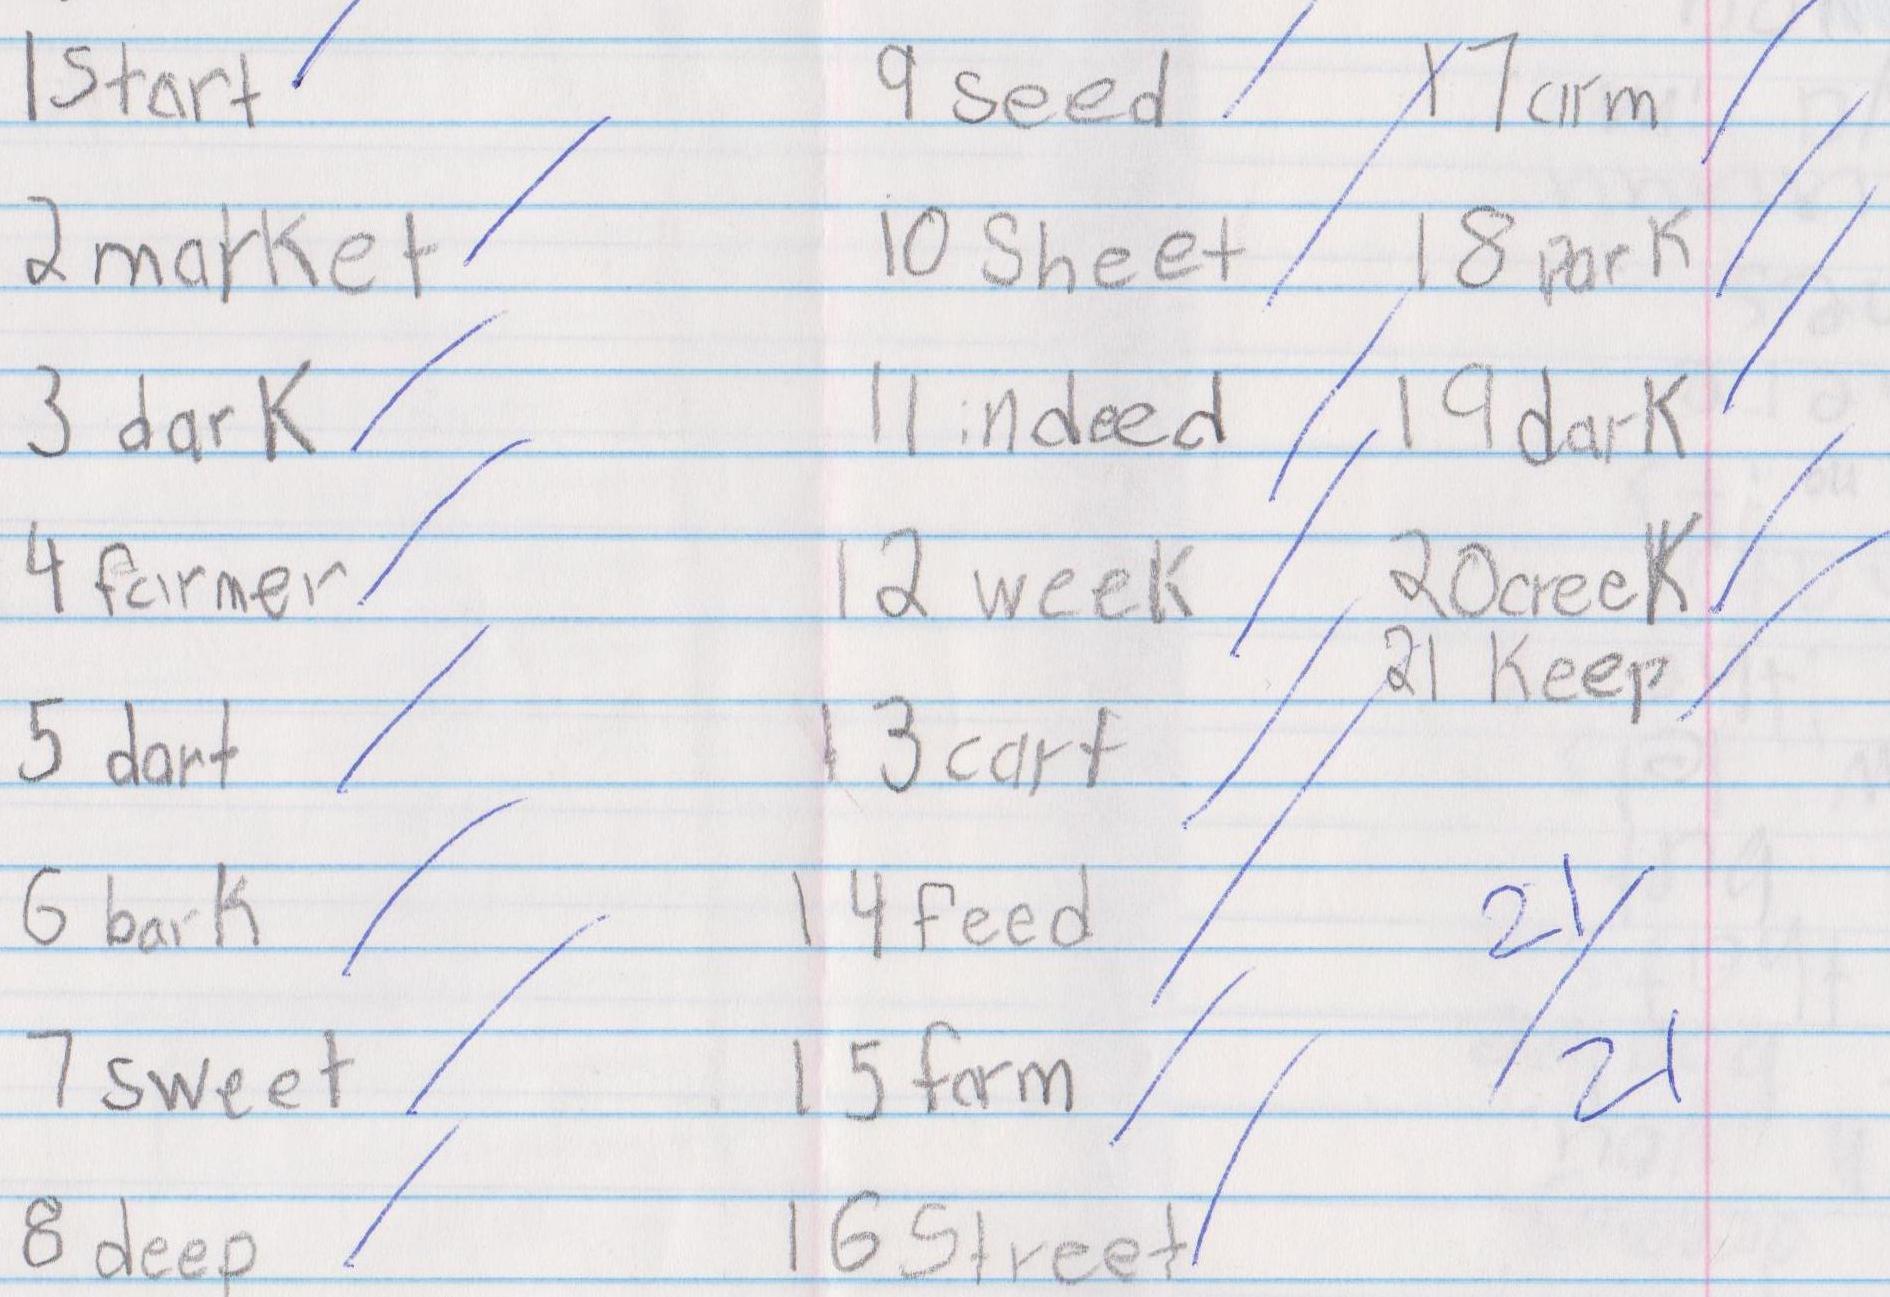 1 Start
2 market
3 dark
4 farmer
5 dart
6 bark
7 sweet
8 deep
9 seed
10 Sheet
11 indeed
12 week
13 cart
14 feed
15 farm
16 Street
17 arm
18 park
19 dark
20 creek
21 Keep
21/21